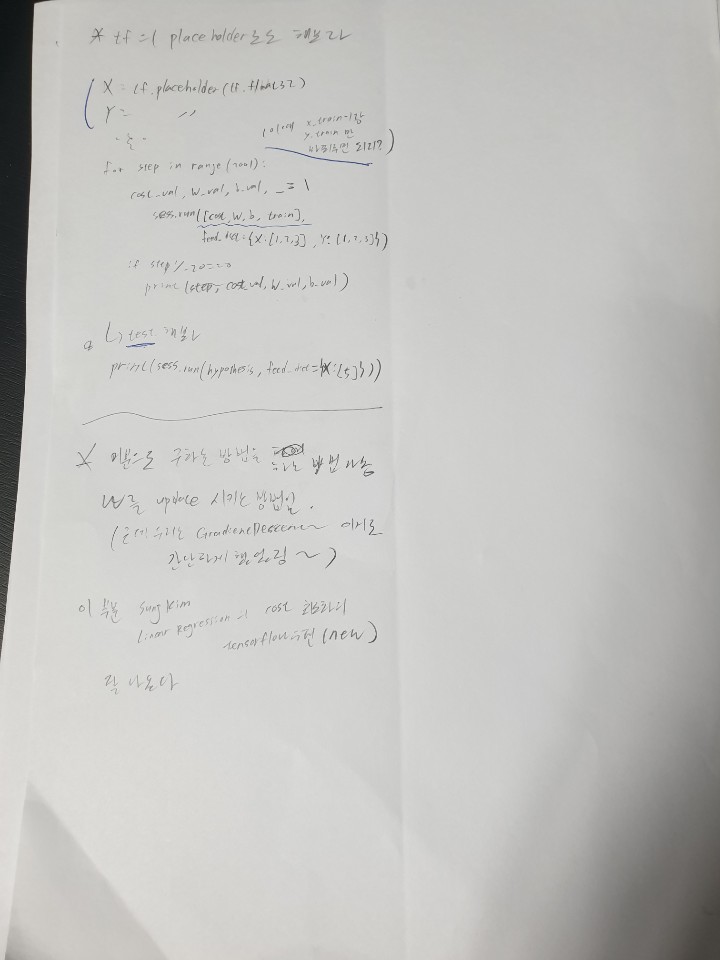 * tf 의 placeholder로도 해보라
X = tf.placeholder(tf.float32)
Y = 〃
(이제 x_train이랑
y_train 만
바꿔주면 되리?)
for step in range(2001):
cost_val, W_val, b_val, _ = \
sess.run([cost, W, b, train],
feed_dict={X:[1,2,3], Y:[1,2,3]})
if step % 20 == 0
print(step, cost_val, W_val, b_val)
↳ test 해보라
print(sess.run(hypothesis, feed_dict={X:[5]}))
* 미분으로 구하는 방법을 방법 나옴
W를 update 시키는 방법임.
(근데 우리는 GradientDescent 이거로
간단하게 했었음 ~)
이 부분 Sung Kim
Linear Regression의 cost 최소화의
tensorflow 구현 (new)
잘 나온다